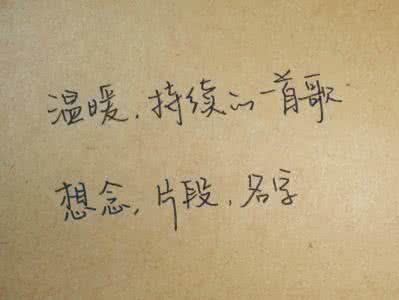 温暖，持续的一首歌
想念，片段，名字